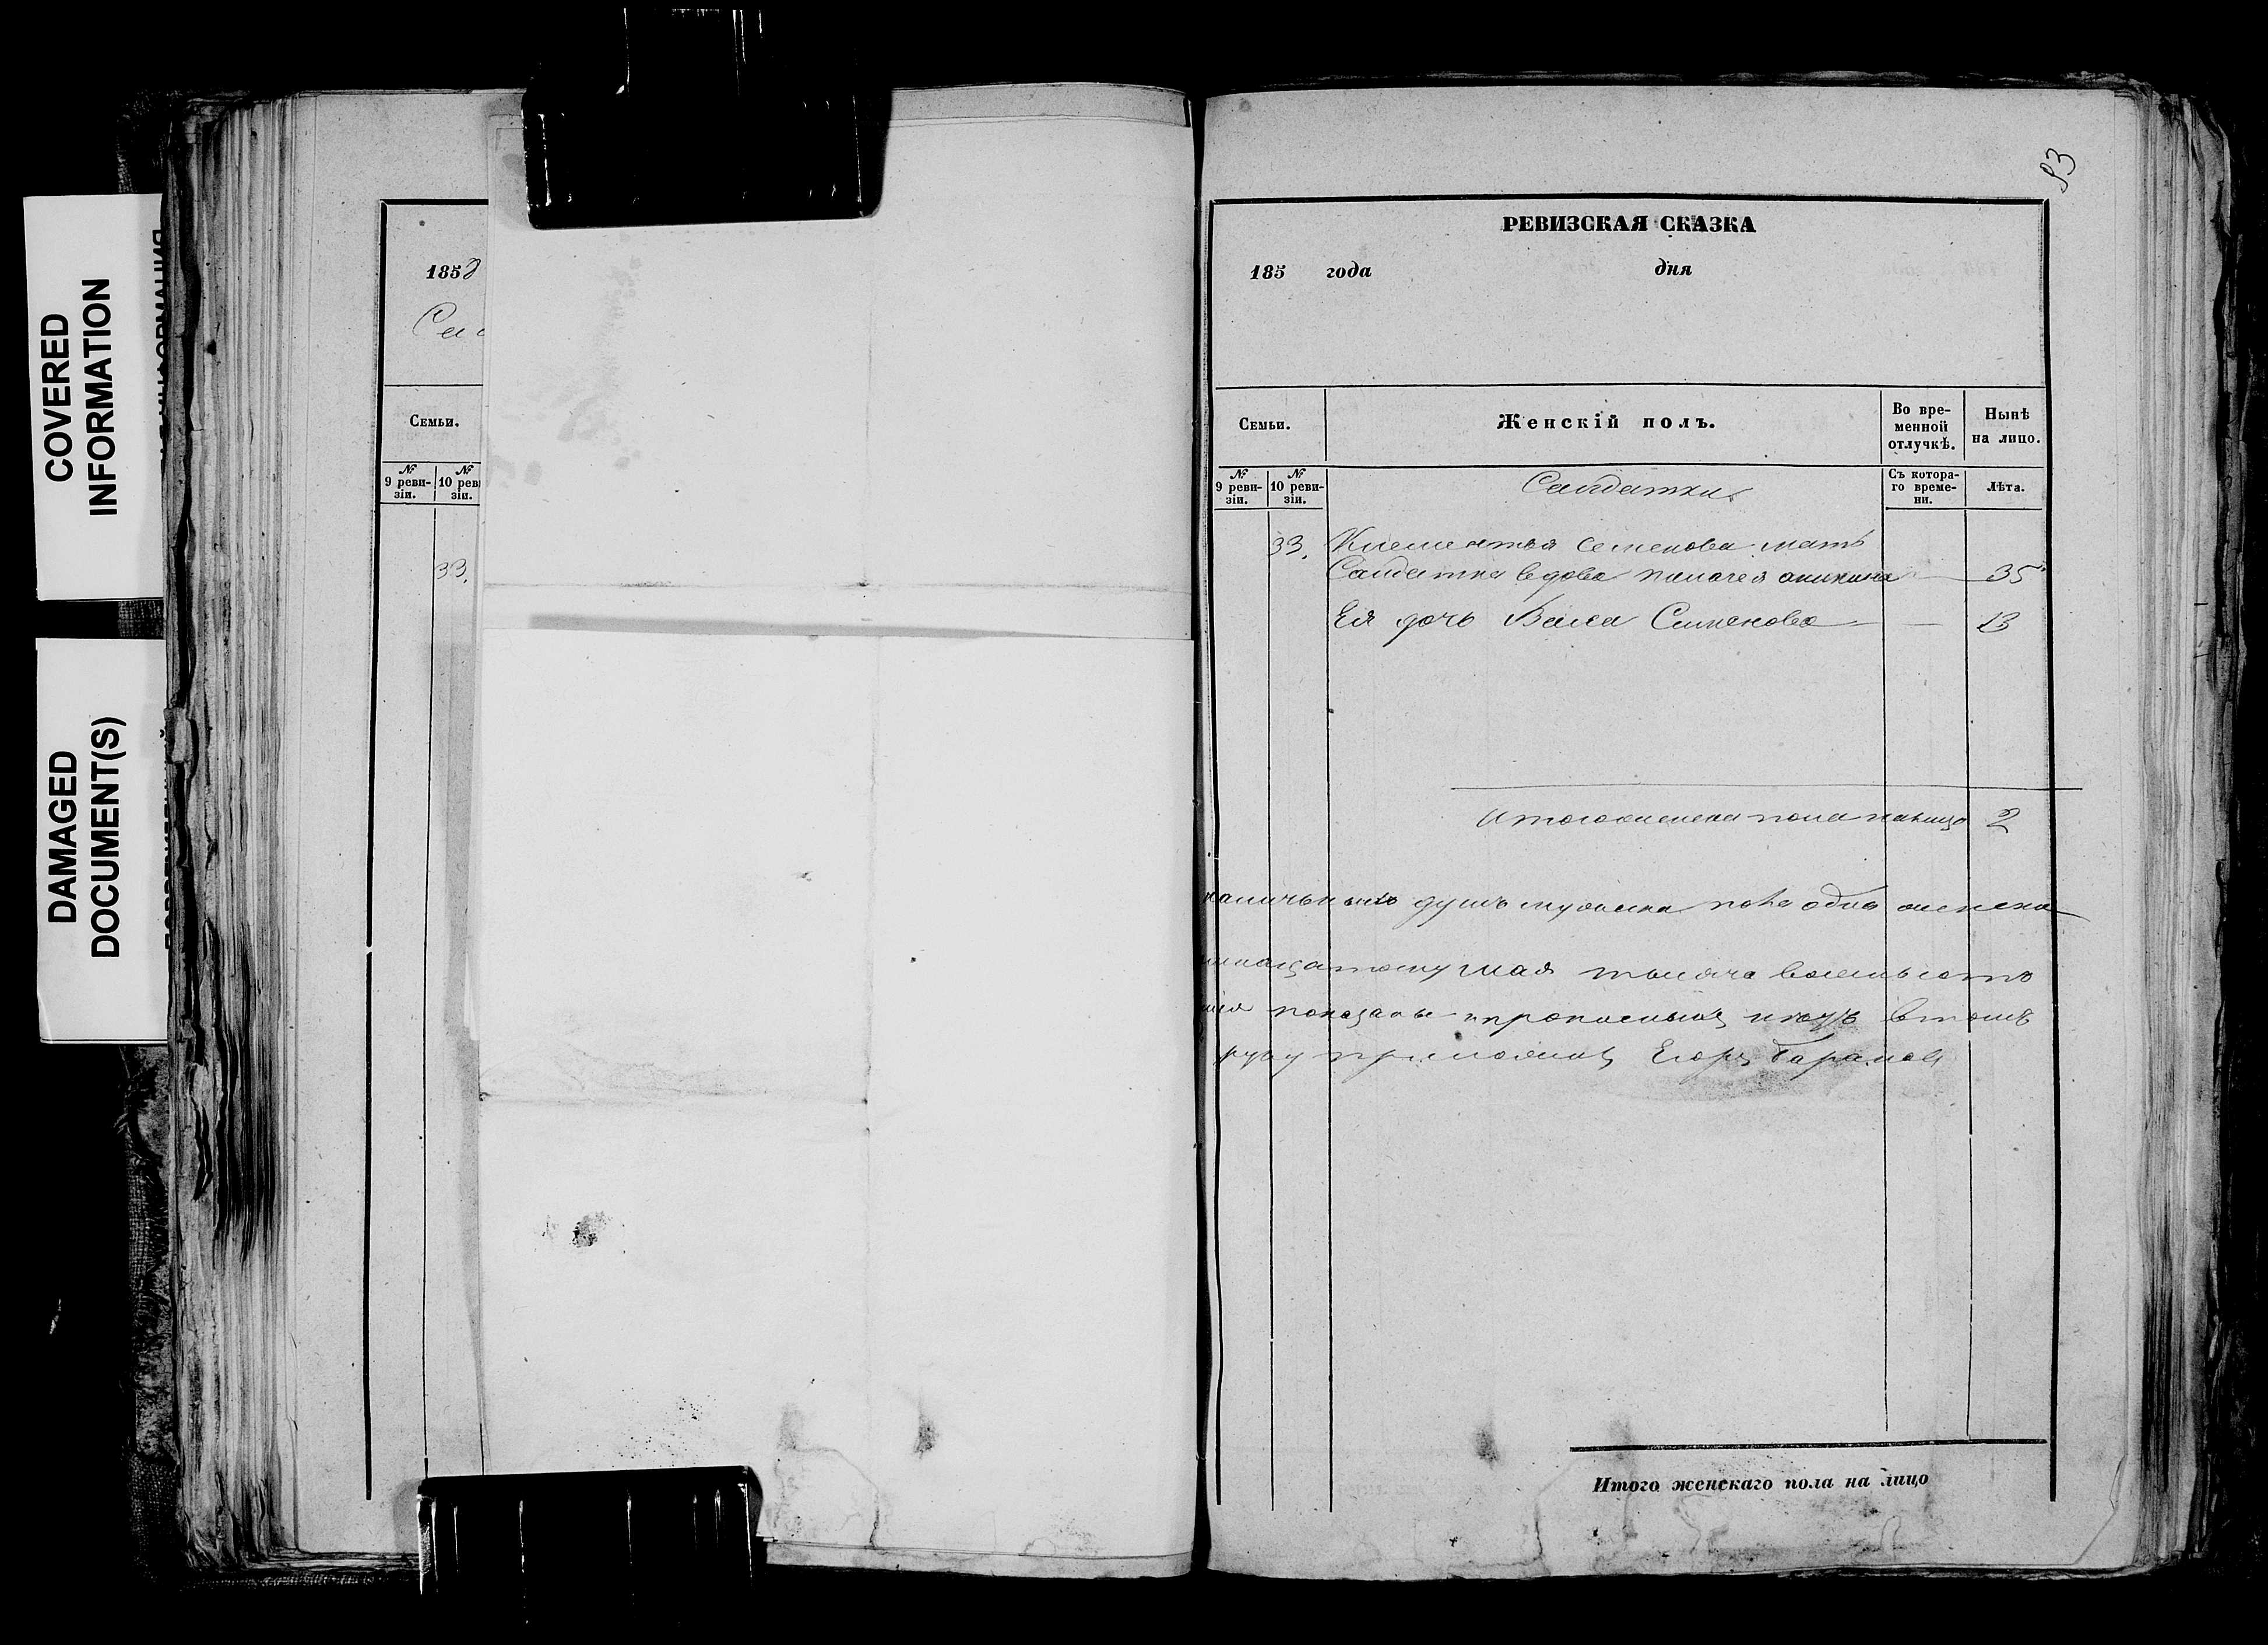 COVERED
INFORMATION
DAMAGED
DOCUMENT(S)
1858
Семьи.
№ 9 ревизіи.
№ 10 реви зіи.
33.
83
РЕВИЗСКАЯ СКАЗКА
185 года дня
Семьи.
Женскій полъ.
Во временной отлучкѣ.
Нынѣ на лицо.
№ 9 ревизіи.
№ 10 ревизіи.
Салдатки
Съ котораго времени.
Лѣта.
33. Клементья Семенова мать
Салдатка вдова аникина — 35
Ея дочь Семенова — 13
Итого женска пола налицо 2
душъ мужеска пола одна женска
мая тысяча восемьсотъ
показаны и прописныхъ нѣтъ втомъ
руку приложилъ Егоръ Барановъ
Итого женскаго пола на лицо